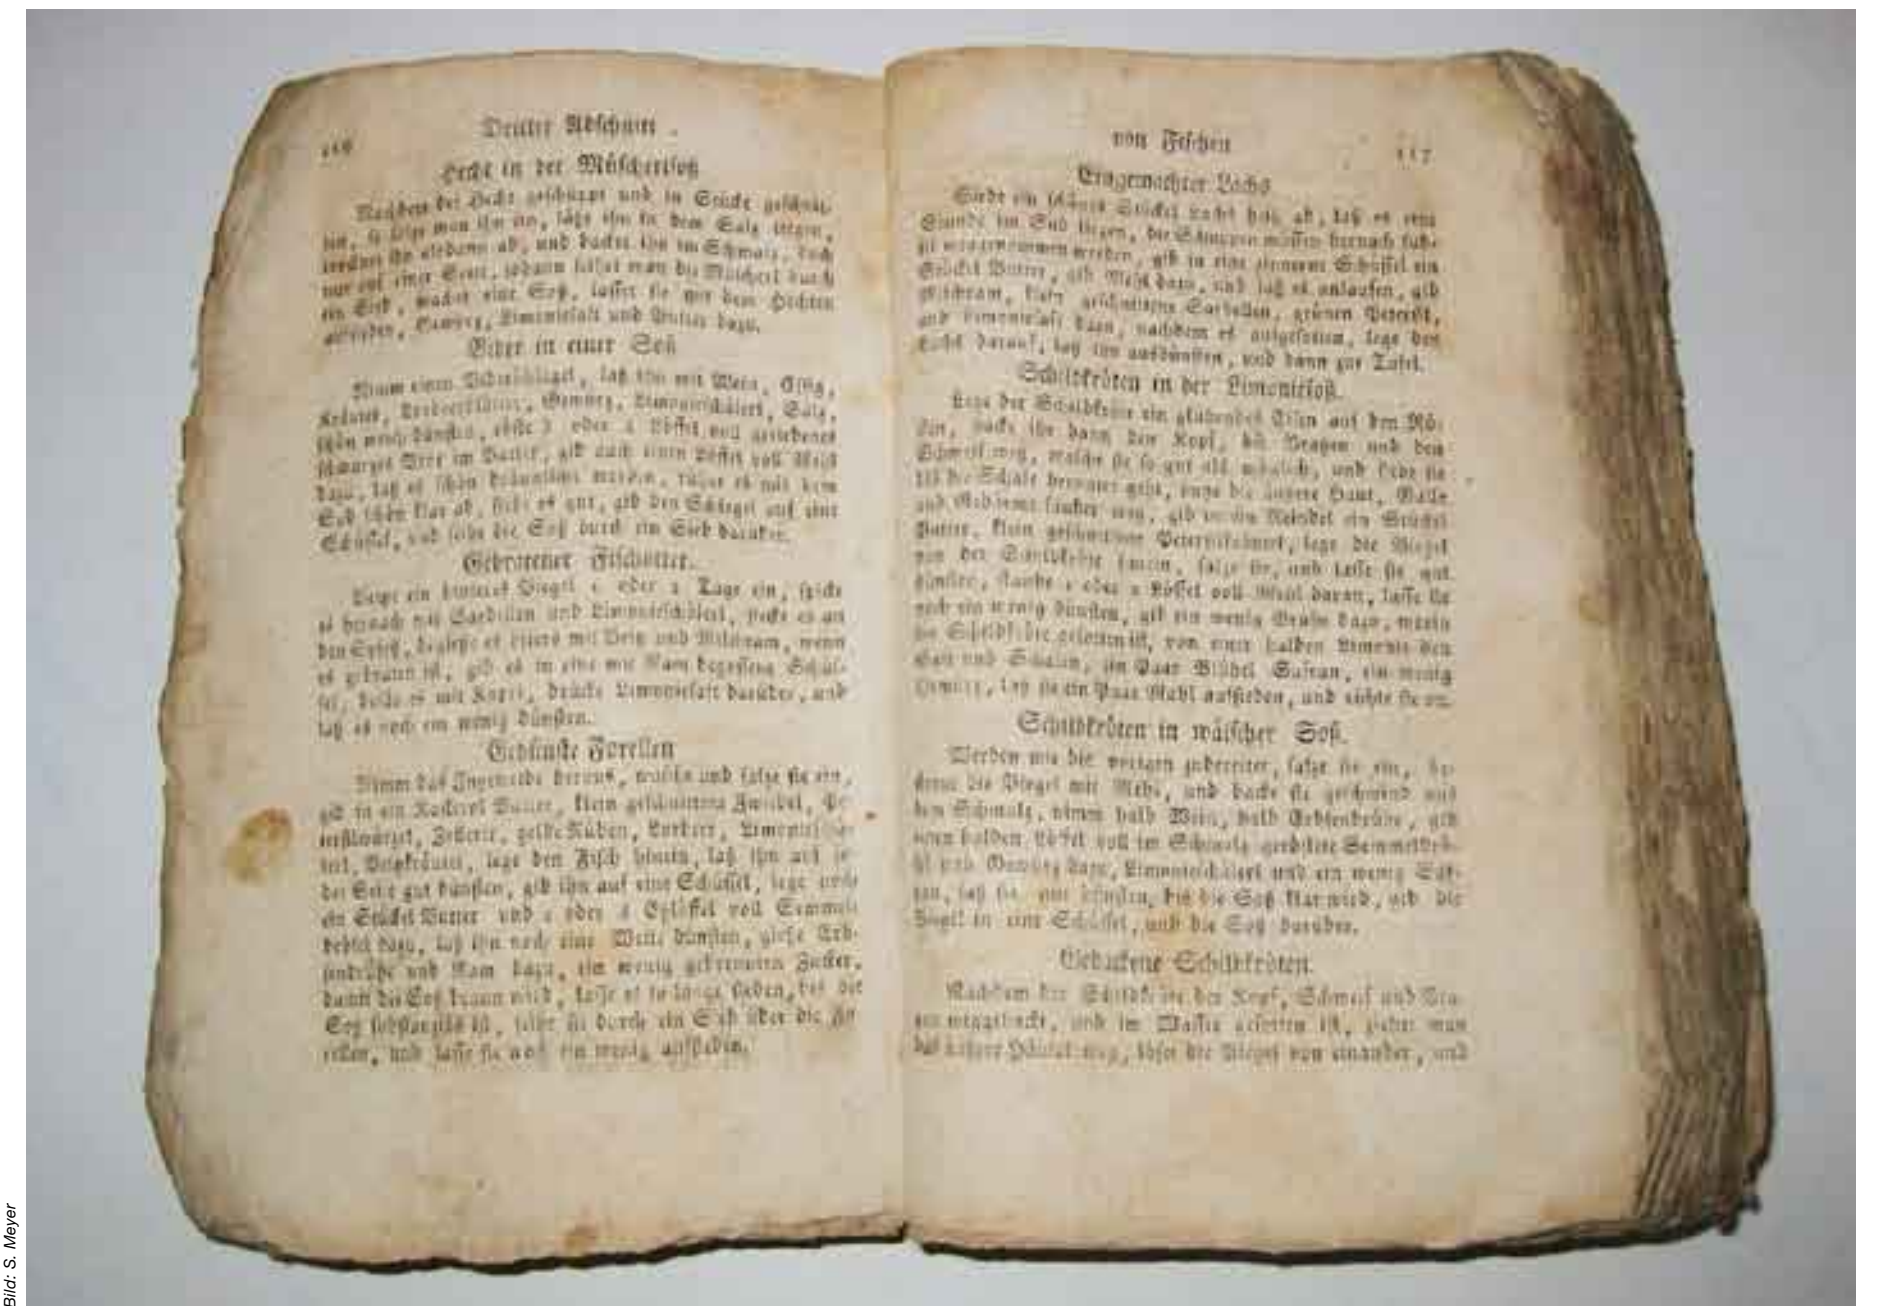 116
Dritter Abschnitt
Hecht in der Mäscherlsoß
Nachdem der Hecht geschuppt und in Stücke geschnit-
ten, so salze man ihn ein, laße ihn in dem Salz liegen,
ihn alsdann ab, und backet ihn im Schmalz, doch
nur auf einer Seite, sodann seihet man die Mäscherl durch
ein Sieb, machet eine Soß, lasset sie mit dem Hechten
aufsieden, Gewürz, Limoniesaft und Butter dazu.
Biber in einer Soß
Nimm einen Biberschlägel, laß ihn mit Wein, Essig,
Kräuter, Lorbeerblätter, Gewürz, Limonieschälerl, Salz,
schön weich dünsten, röste 3 oder 4 Löffel voll geriebenes
schwarzes Brot im Butter, gib auch einen Löffel voll Mehl
dazu, laß es schön bräunlicht werden, rühre es mit dem
Sud schön klar ab, siede es gut, gib den Schlegel auf eine
Schüssel, und seihe die Soß durch ein Sieb darüber.
Gebratener Fischotter.
ein hinteres Biegel 1 oder 2 Tage ein, spicke
es hernach mit Sardellen und Limonieschälerl, stecke es an
den Spieß, begieße es öfters mit Wein und Milchram, wenn
es gebraten ist, gib es in eine mit Ram begossene Schüs-
sel, drücke Limoniesaft darüber, und
laß es noch ein wenig dünsten.
Gedünste Forellen
Nimm das Ingeweide heraus, wasche und salze sie ein,
gib in ein Butter, klein geschnittene Zwiebel, Pe-
tersilwurzel, Zellerie, gelbe Rüben, Lorbeer, Limonieschä-
lerl, lege den Fisch hinein, laß ihn auf je-
der Seite gut dünsten, gib ihn auf eine Schüssel, lege noch
ein Stückel Butter und oder Eßlöffel voll Semmel-
brösel dazu, laß ihn noch eine Weile dünsten, gieße Erb-
senbrühe und Ram dazu, ein wenig gebrennten Zucker,
damit die Soß braun wird, lasse es so lange sieden, bis die
Soß ist, seihe sie durch ein Sieb über die Fo-
rellen, und lasse sie noch ein wenig aufsieden.
von Fischen
117
Eingemachter Lachs
Siede ein schönes Stückel Lachs ab, laß es eine
Stunde im Sud liegen, die Schuppen müssen hernach
weggenommen werden, gib in eine zinnerne Schüssel ein
Stückel Butter, gib Mehl dazu, und laß es anlaufen, gib
Milchram, klein geschnittene Sardellen, grünen Petersil,
und Limoniesaft dazu, nachdem es aufgesotten, lege den
Lachs darauf, laß ihn ausdünsten, und dann zur Tafel.
Schildkröten in der Limoniesoß.
Lege der Schildkröte ein glühendes Eisen auf den Rü-
cken, hacke ihr dann den Kopf, die Bratzen und den
Schweif weg, wasche sie so gut als möglich, und siede sie
bis die Schale herunter geht, die äußere Haut, Galle
und Gedärme sauber weg, gib in ein Reindel ein Stückel
Butter, klein geschnittene Petersilwurzel, lege die Biegel
von der Schildkröte hinein, salze sie, und lasse sie gut
dünsten, staube 1 oder 2 Löffel voll Mehl daran, lasse sie
noch ein wenig dünsten, gib ein wenig Brühe dazu, worin
die Schildkröte gesotten ist, von einer halben Limonie den
Saft und Schalen, ein Paar Blüdel Safran, ein wenig
Gewürz, laß sie ein Paar Mahl aufsieden, und richte sie an.
Schildkröten in wälscher Soß.
Werden wie die vorigen zubereitet, salze sie ein, be-
streue die Biegel mit Mehl, und backe sie geschwind aus
dem Schmalz, nimm halb Wein, halb Erbsenbrühe, gib
einen halben Löffel voll im Schmalz geröstete Semmelbrö-
sel und Gewürz dazu, Limonieschälerl und ein wenig
laß sie gut dünsten, bis die Soß klar wird, gib die
Biegel in eine Schüssel, und die Soß darüber.
Gebackene Schildkröten.
Nachdem der Schildkröte der Kopf, Schweif und Bra-
tzen weggehackt, und im Wasser gesotten ist, ziehet man
das Häutel weg, löset die Biegel von einander, und
Bild: S. Meyer